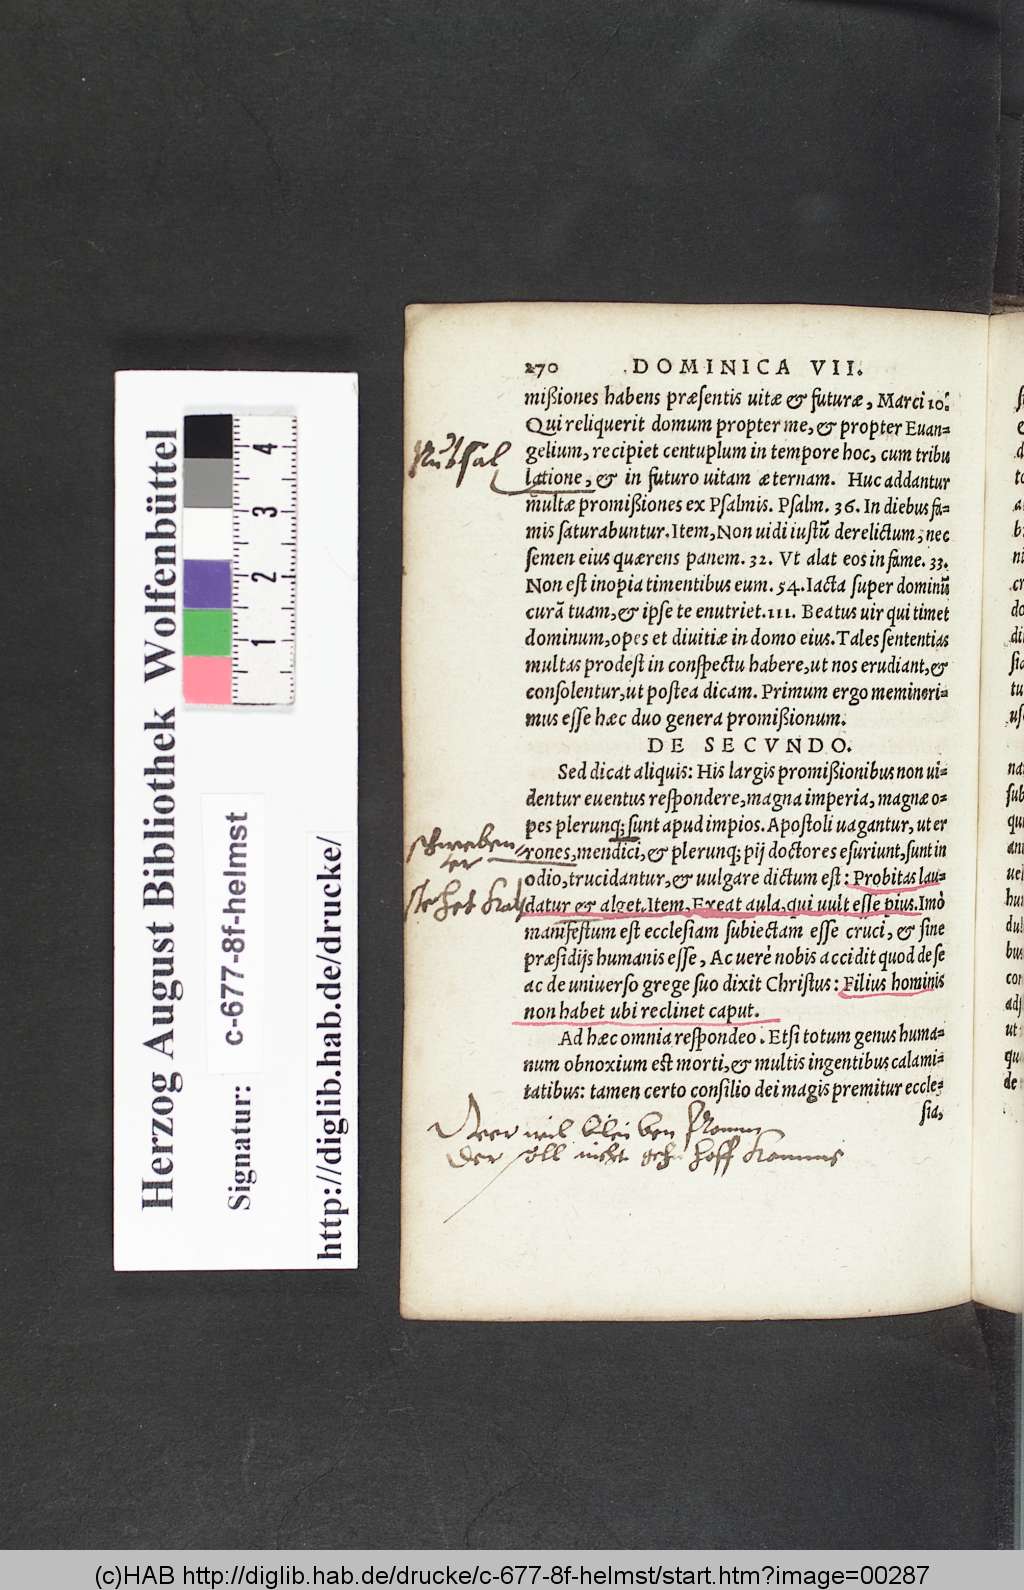 Herzog August Bibliothek Wolfenbüttel
Signatur: c-677-8f-helmst
http://diglib.hab.de/drucke/
1 2 3 4
270 DOMINICA VII.
mißiones habens præsentis uitæ & futuræ, Marci 10.
Qui reliquerit domum propter me, & propter Euan-
gelium, recipiet centuplum in tempore hoc, cum tribu
latione, & in futuro uitam æternam. Huc addantur
multæ promißiones ex Psalmis. Psalm. 36. In diebus fa-
mis saturabuntur. Item, Non uidi iustũ derelictum, nec
semen eius quærens panem. 32. Vt alat eos in fame. 33.
Non est inopia timentibus eum. 54. Iacta super dominũ
curã tuam, & ipse te enutriet. 111. Beatus uir qui timet
dominum, opes et diuitiæ in domo eius. Tales sententias
multas prodest in conspectu habere, ut nos erudiant, &
consolentur, ut postea dicam. Primum ergo memineri-
mus esse hæc duo genera promißionum.
DE SECVNDO.
Sed dicat aliquis: His largis promißionibus non ui-
dentur euentus respondere, magna imperia, magnæ o-
pes plerunq; sunt apud impios. Apostoli uagantur, ut er
rones, mendici, & plerunq; pij doctores esuriunt, sunt in
odio, trucidantur, & uulgare dictum est: Probitas lau-
datur & alget. Item. Exeat aula, qui uult esse pius. Imò
manifestum est ecclesiam subiectam esse cruci, & sine
præsidijs humanis esse, Ac uerè nobis accidit quod de se
ac de uniuerso grege suo dixit Christus: Filius hominis
non habet ubi reclinet caput.
Ad hæc omnia respondeo. Etsi totum genus huma-
num obnoxium est morti, & multis ingentibus calami-
tatibus: tamen certo consilio dei magis premitur eccle-
sia,
der soll nicht hoff
(c)HAB http://diglib.hab.de/drucke/c-677-8f-helmst/start.htm?image=00287